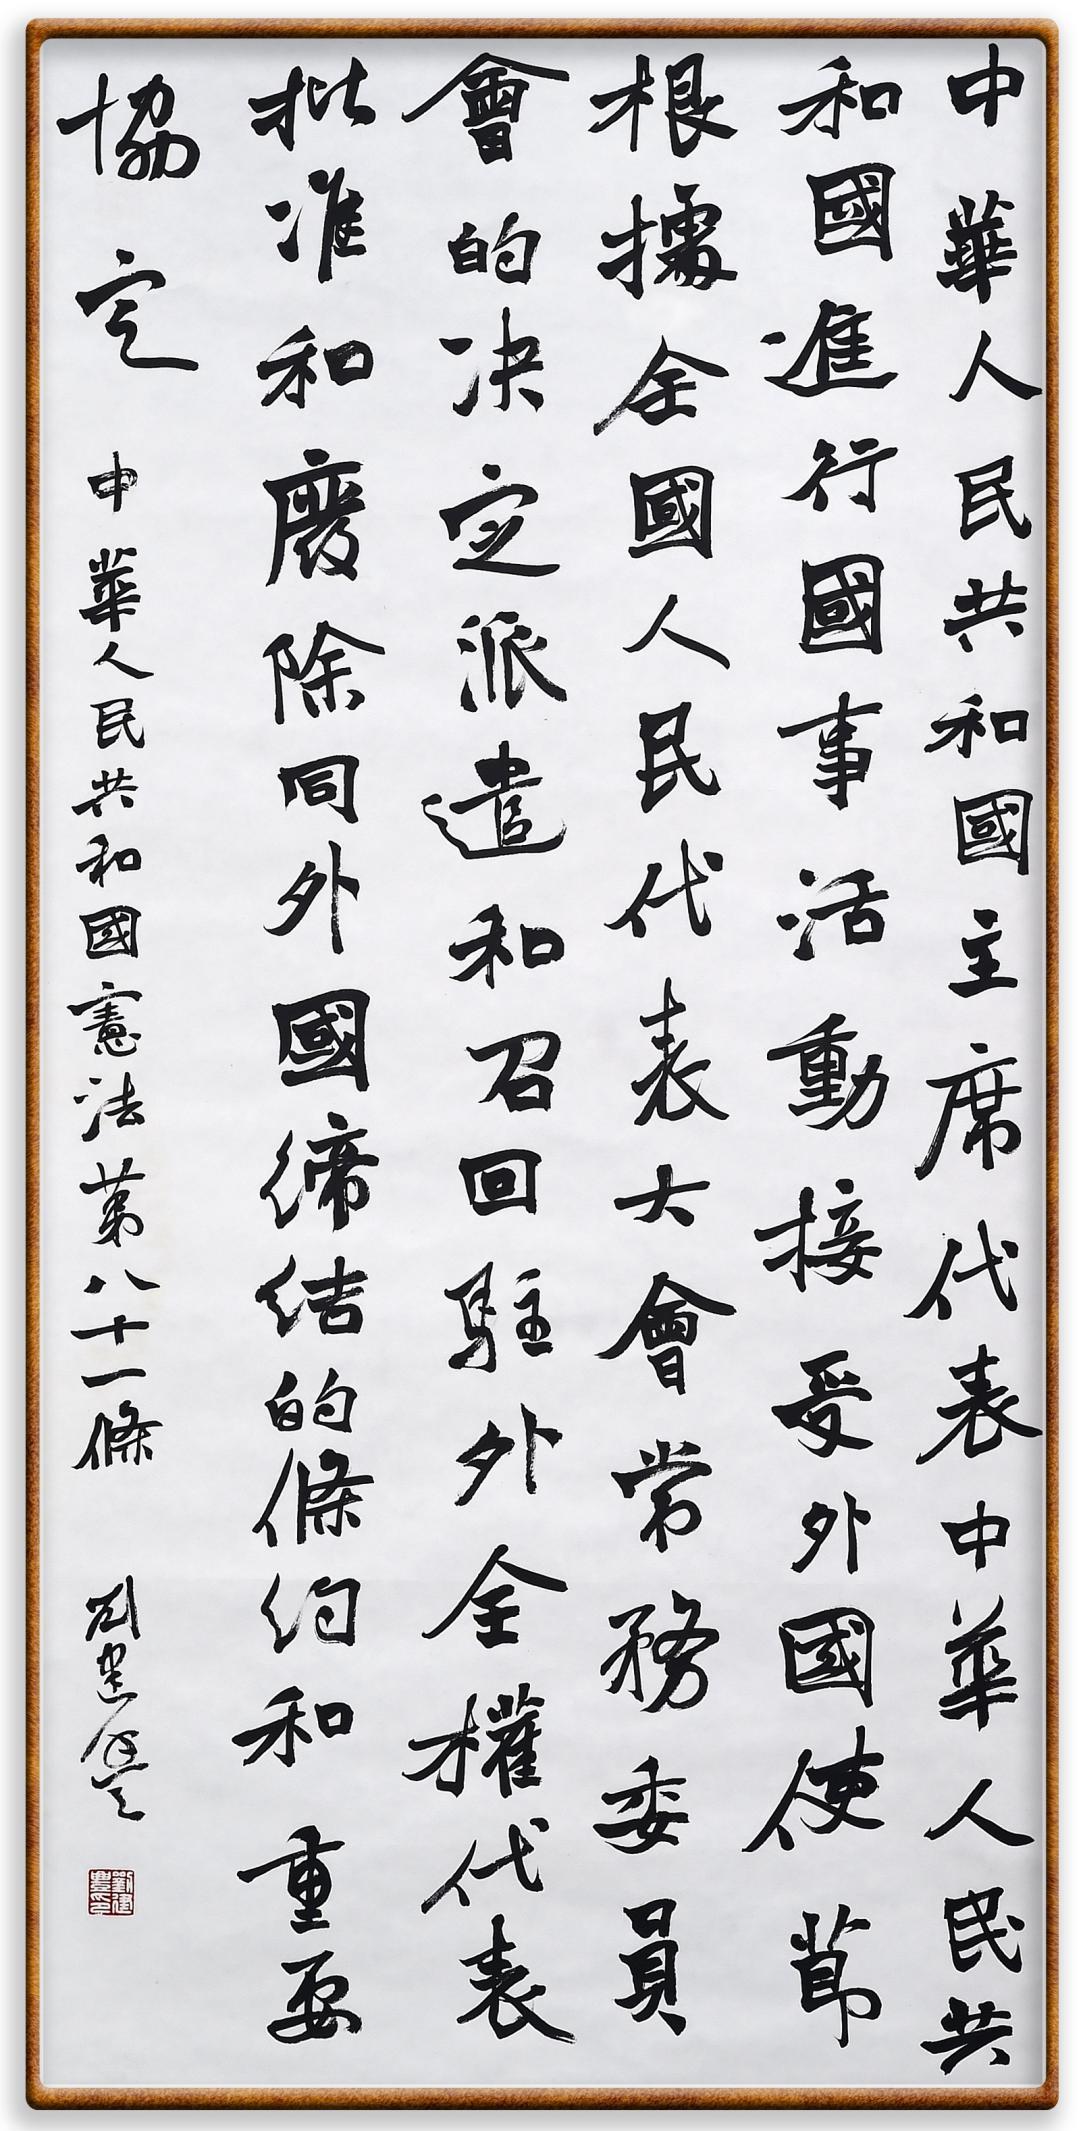 中華人民共和國主席代表中華人民共
和國進行國事活動接受外國使節
根據全國人民代表大會常務委員
會的决定派遣和召回駐外全權代表
批准和廢除同外國締結的條約和重要
協定
中華人民共和國憲法第八十一條
劉建豐
劉建豐印